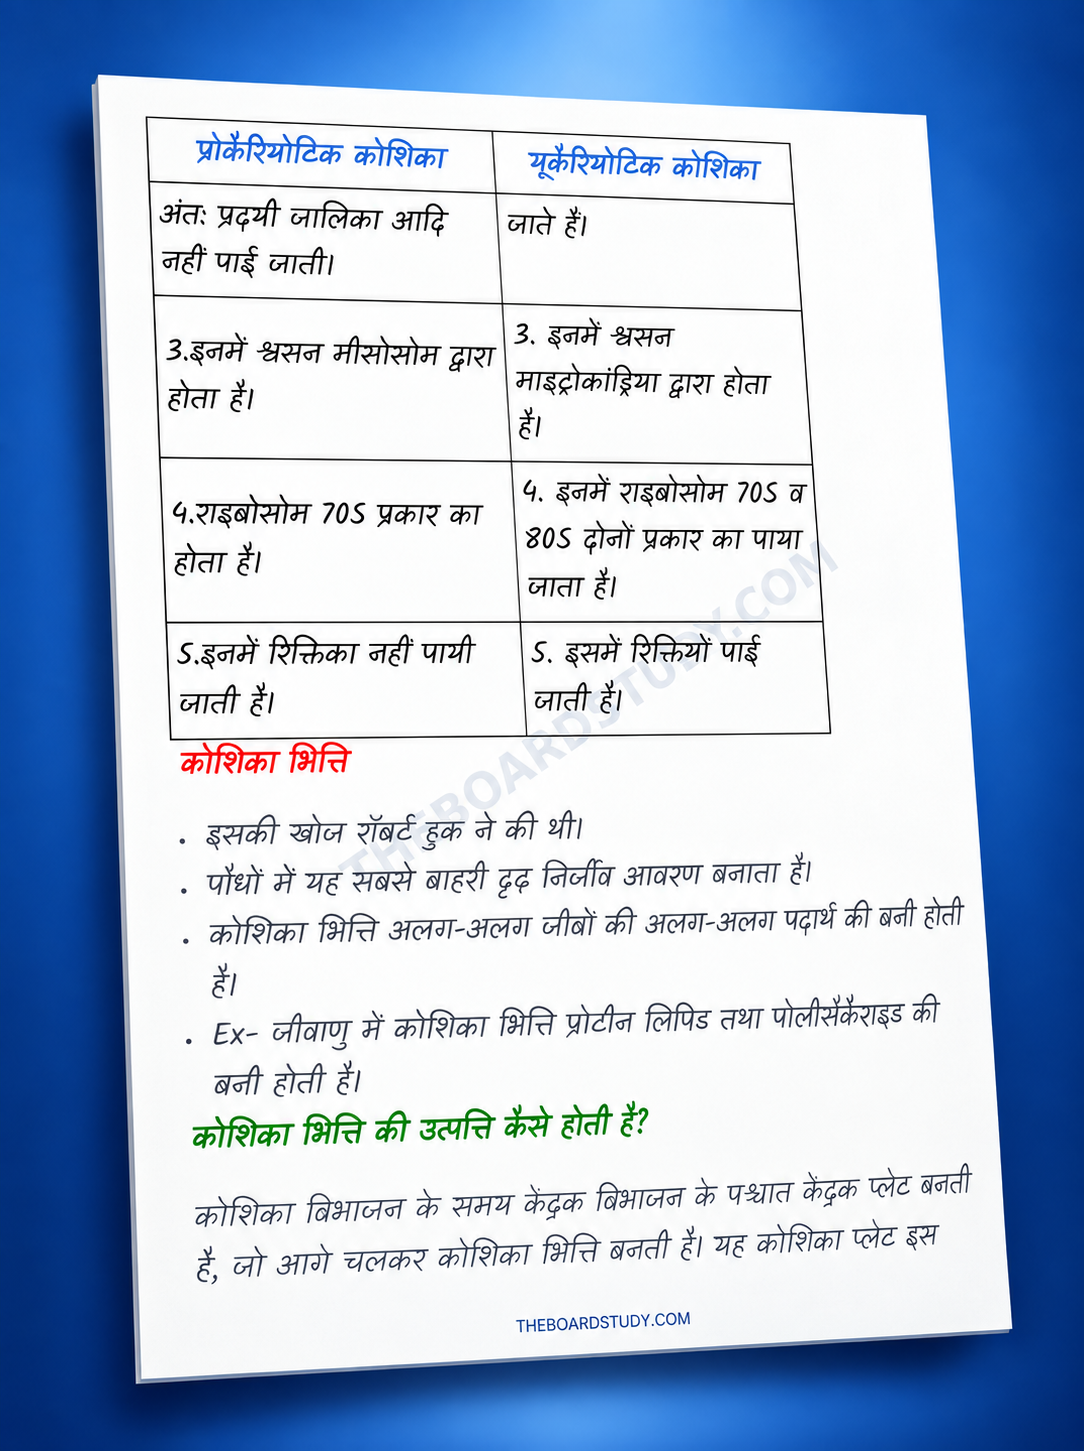 प्रोकैरियोटिक कोशिका
यूकैरियोटिक कोशिका
अंतः प्रद्रयी जालिका आदि
नहीं पाई जाती।
जाते हैं।
3.इनमें श्वसन मीसोसोम द्वारा
होता है।
3. इनमें श्वसन
माइट्रोकांड्रिया द्वारा होता
है।
4.राइबोसोम 70S प्रकार का
होता है।
4. इनमें राइबोसोम 70S व
80S दोनों प्रकार का पाया
जाता है।
5.इनमें रिक्तिका नहीं पायी
जाती है।
5. इसमें रिक्तियों पाई
जाती है।
कोशिका भित्ति
• इसकी खोज रॉबर्ट हुक ने की थी।
• पौधों में यह सबसे बाहरी दृढ़ निर्जीव आवरण बनाता है।
• कोशिका भित्ति अलग-अलग जीबों की अलग-अलग पदार्थ की बनी होती
है।
• Ex- जीवाणु में कोशिका भित्ति प्रोटीन लिपिड तथा पोलीसैकैराइड की
बनी होती है।
कोशिका भित्ति की उत्पत्ति कैसे होती है?
कोशिका बिभाजन के समय केंद्रक बिभाजन के पश्चात केंद्रक प्लेट बनती
है, जो आगे चलकर कोशिका भित्ति बनती है। यह कोशिका प्लेट इस
THEBOARDSTUDY.COM
THEBOARDSTUDY.COM